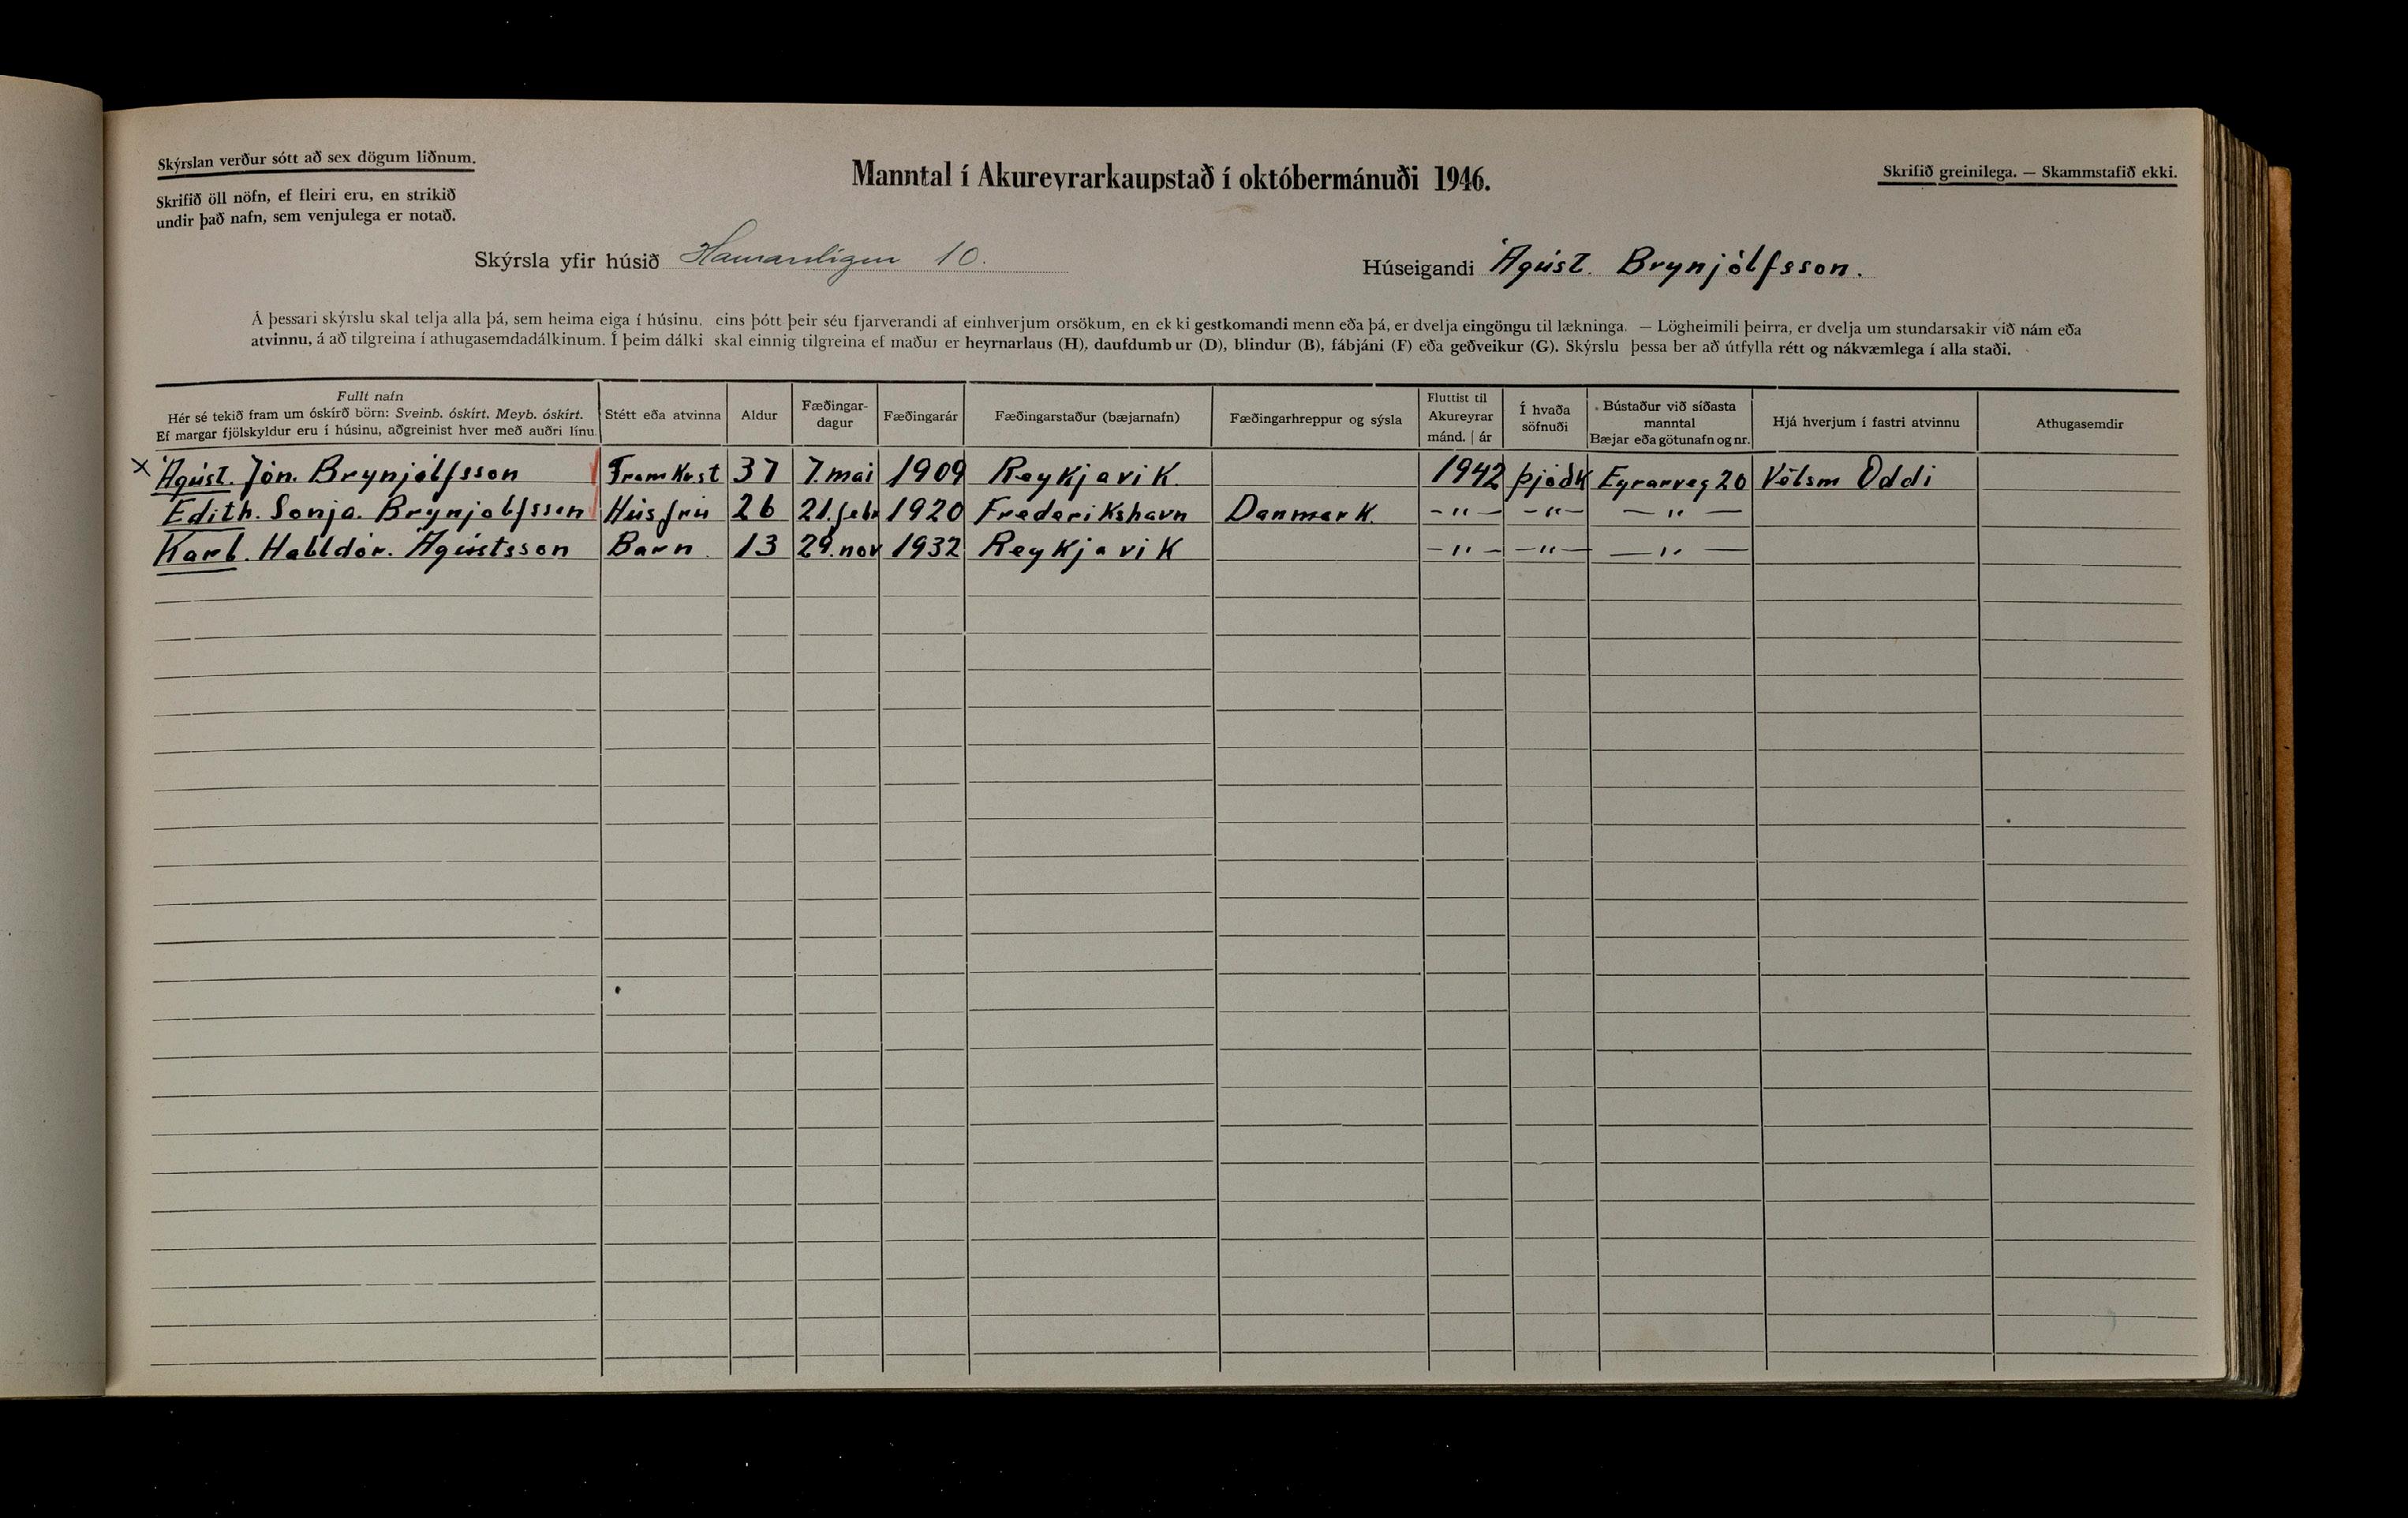 Skýrslan verður sótt að sex dögum liðnum.
Skrifið öll nöfn, ef fleiri eru, en strikið
undir það nafn, sem venjulega er notað.
Manntal í Akureyrarkaupstað í októbermánuði 1946.
Skrifið greinilega. — Skammstafið ekki.
Skýrsla yfir húsið Hamarstígur 10.
Húseigandi Ágúst. Brynjólfsson.
Á þessari skýrslu skal telja alla þá, sem heima eiga í húsinu, eins þótt þeir séu fjarverandi af einhverjum orsökum, en ekki gestkomandi menn eða þá, er dvelja eingöngu til lækninga. — Lögheimili þeirra, er dvelja um stundarsakir við nám eða
atvinnu, á að tilgreina í athugasemdadálkinum. Í þeim dálki skal einnig tilgreina ef maður er heyrnarlaus (H), daufdumbur (D), blindur (B), fábjáni (F) eða geðveikur (G). Skýrslu þessa ber að útfylla rétt og nákvæmlega í alla staði.
Fullt nafn
Hér sé tekið fram um óskírð börn: Sveinb. óskírt. Meyb. óskírt.
Ef margar fjölskyldur eru í húsinu, aðgreinist hver með auðri línu.
Stétt eða atvinna
Aldur
Fæðingar-
dagur
Fæðingarár
Fæðingarstaður (bæjarnafn)
Fæðingarhreppur og sýsla
Fluttist til
Akureyrar
mánd. | ár
Í hvaða
söfnuði
Bústaður við síðasta
manntal
Bæjar eða götunafn og nr.
Hjá hverjum í fastri atvinnu
Athugasemdir
× Ágúst. Jón. Brynjólfsson Framkvst 37 7. mai 1909 Reykjavik. 1942 þjóðk Eyrarveg 20 Vélsm Oddi
Edith. Sonja. Brynjolfssen Húsfrú 26 21. febr 1920 Frederikshavn Danmark. –"– –"– –"–
Karl. Halldór. Ágústsson Barn. 13 29. nov 1932 Reykjavik –"– –"– –"–